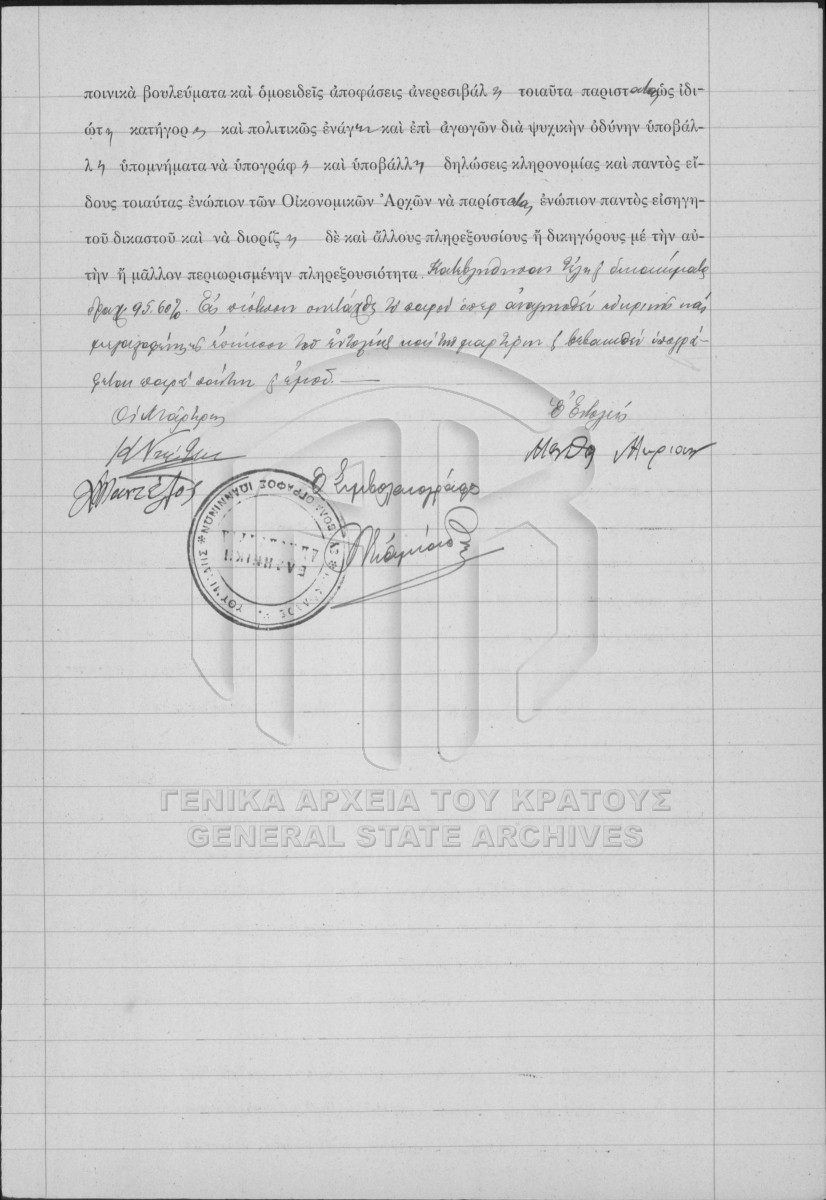 ποινικὰ βουλεύματα καὶ ὁμοειδεῖς ἀποφάσεις ἀνερεσιβάλῃ τοιαῦτα παρισταται ὡς ἰδι-
ώτῃ κατήγορῃ καὶ πολιτικῶς ἐνάγῃ καὶ ἐπὶ ἀγωγῶν διὰ ψυχικὴν ὀδύνην ὑποβάλ-
λῃ ὑπομνήματα νὰ ὑπογράφῃ καὶ ὑποβάλλῃ δηλώσεις κληρονομίας καὶ παντὸς εἴ-
δους τοιαύτας ἐνώπιον τῶν Οἰκονομικῶν Ἀρχῶν νὰ παρίσταται ἐνώπιον παντὸς εἰσηγη-
τοῦ δικαστοῦ καὶ νὰ διορίζῃ δὲ καὶ ἄλλους πληρεξουσίους ἢ δικηγόρους μὲ τὴν αὐ-
τὴν ἢ μᾶλλον περιωρισμένην πληρεξουσιότητα. Κατεβλήθησαν τέλη & δικαιώματα
δραχ 95.60%. Εἰς πίστωσιν συνετάχθη τὸ παρὸν ὅπερ ἀναγνωσθὲν εὐκρινῶς καὶ
μεγαλοφώνως ἐπήκοον τοῦ ἐντολέως καὶ τῶν μαρτύρων & βεβαιωθὲν ὑπογρά-
φεται παρὰ πάντων & ἐμοῦ.
Οἱ Μάρτυρες Ὁ Ἐντολεύς
Ὁ Συμβολαιογράφος
ΣΥΜΒΟΛΑΙΟΓΡΑΦΟΣ ΙΩΑΝΝΙΝΩΝ
ΕΛΛΗΝΙΚΗ
ΓΕΝΙΚΑ ΑΡΧΕΙΑ ΤΟΥ ΚΡΑΤΟΥΣ
GENERAL STATE ARCHIVES